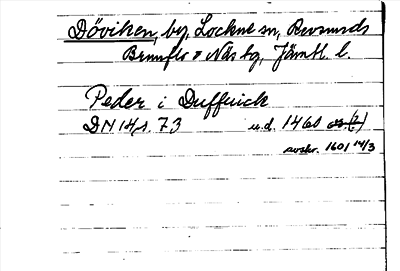 Döviken, by, Lockne sn, Revsunds
Brunflo o Näs tg, Jämtl. l.
Peder i Duffuick
DN 14/1. 73 u.d. 1460 (?)
avskr. 1601 14/3